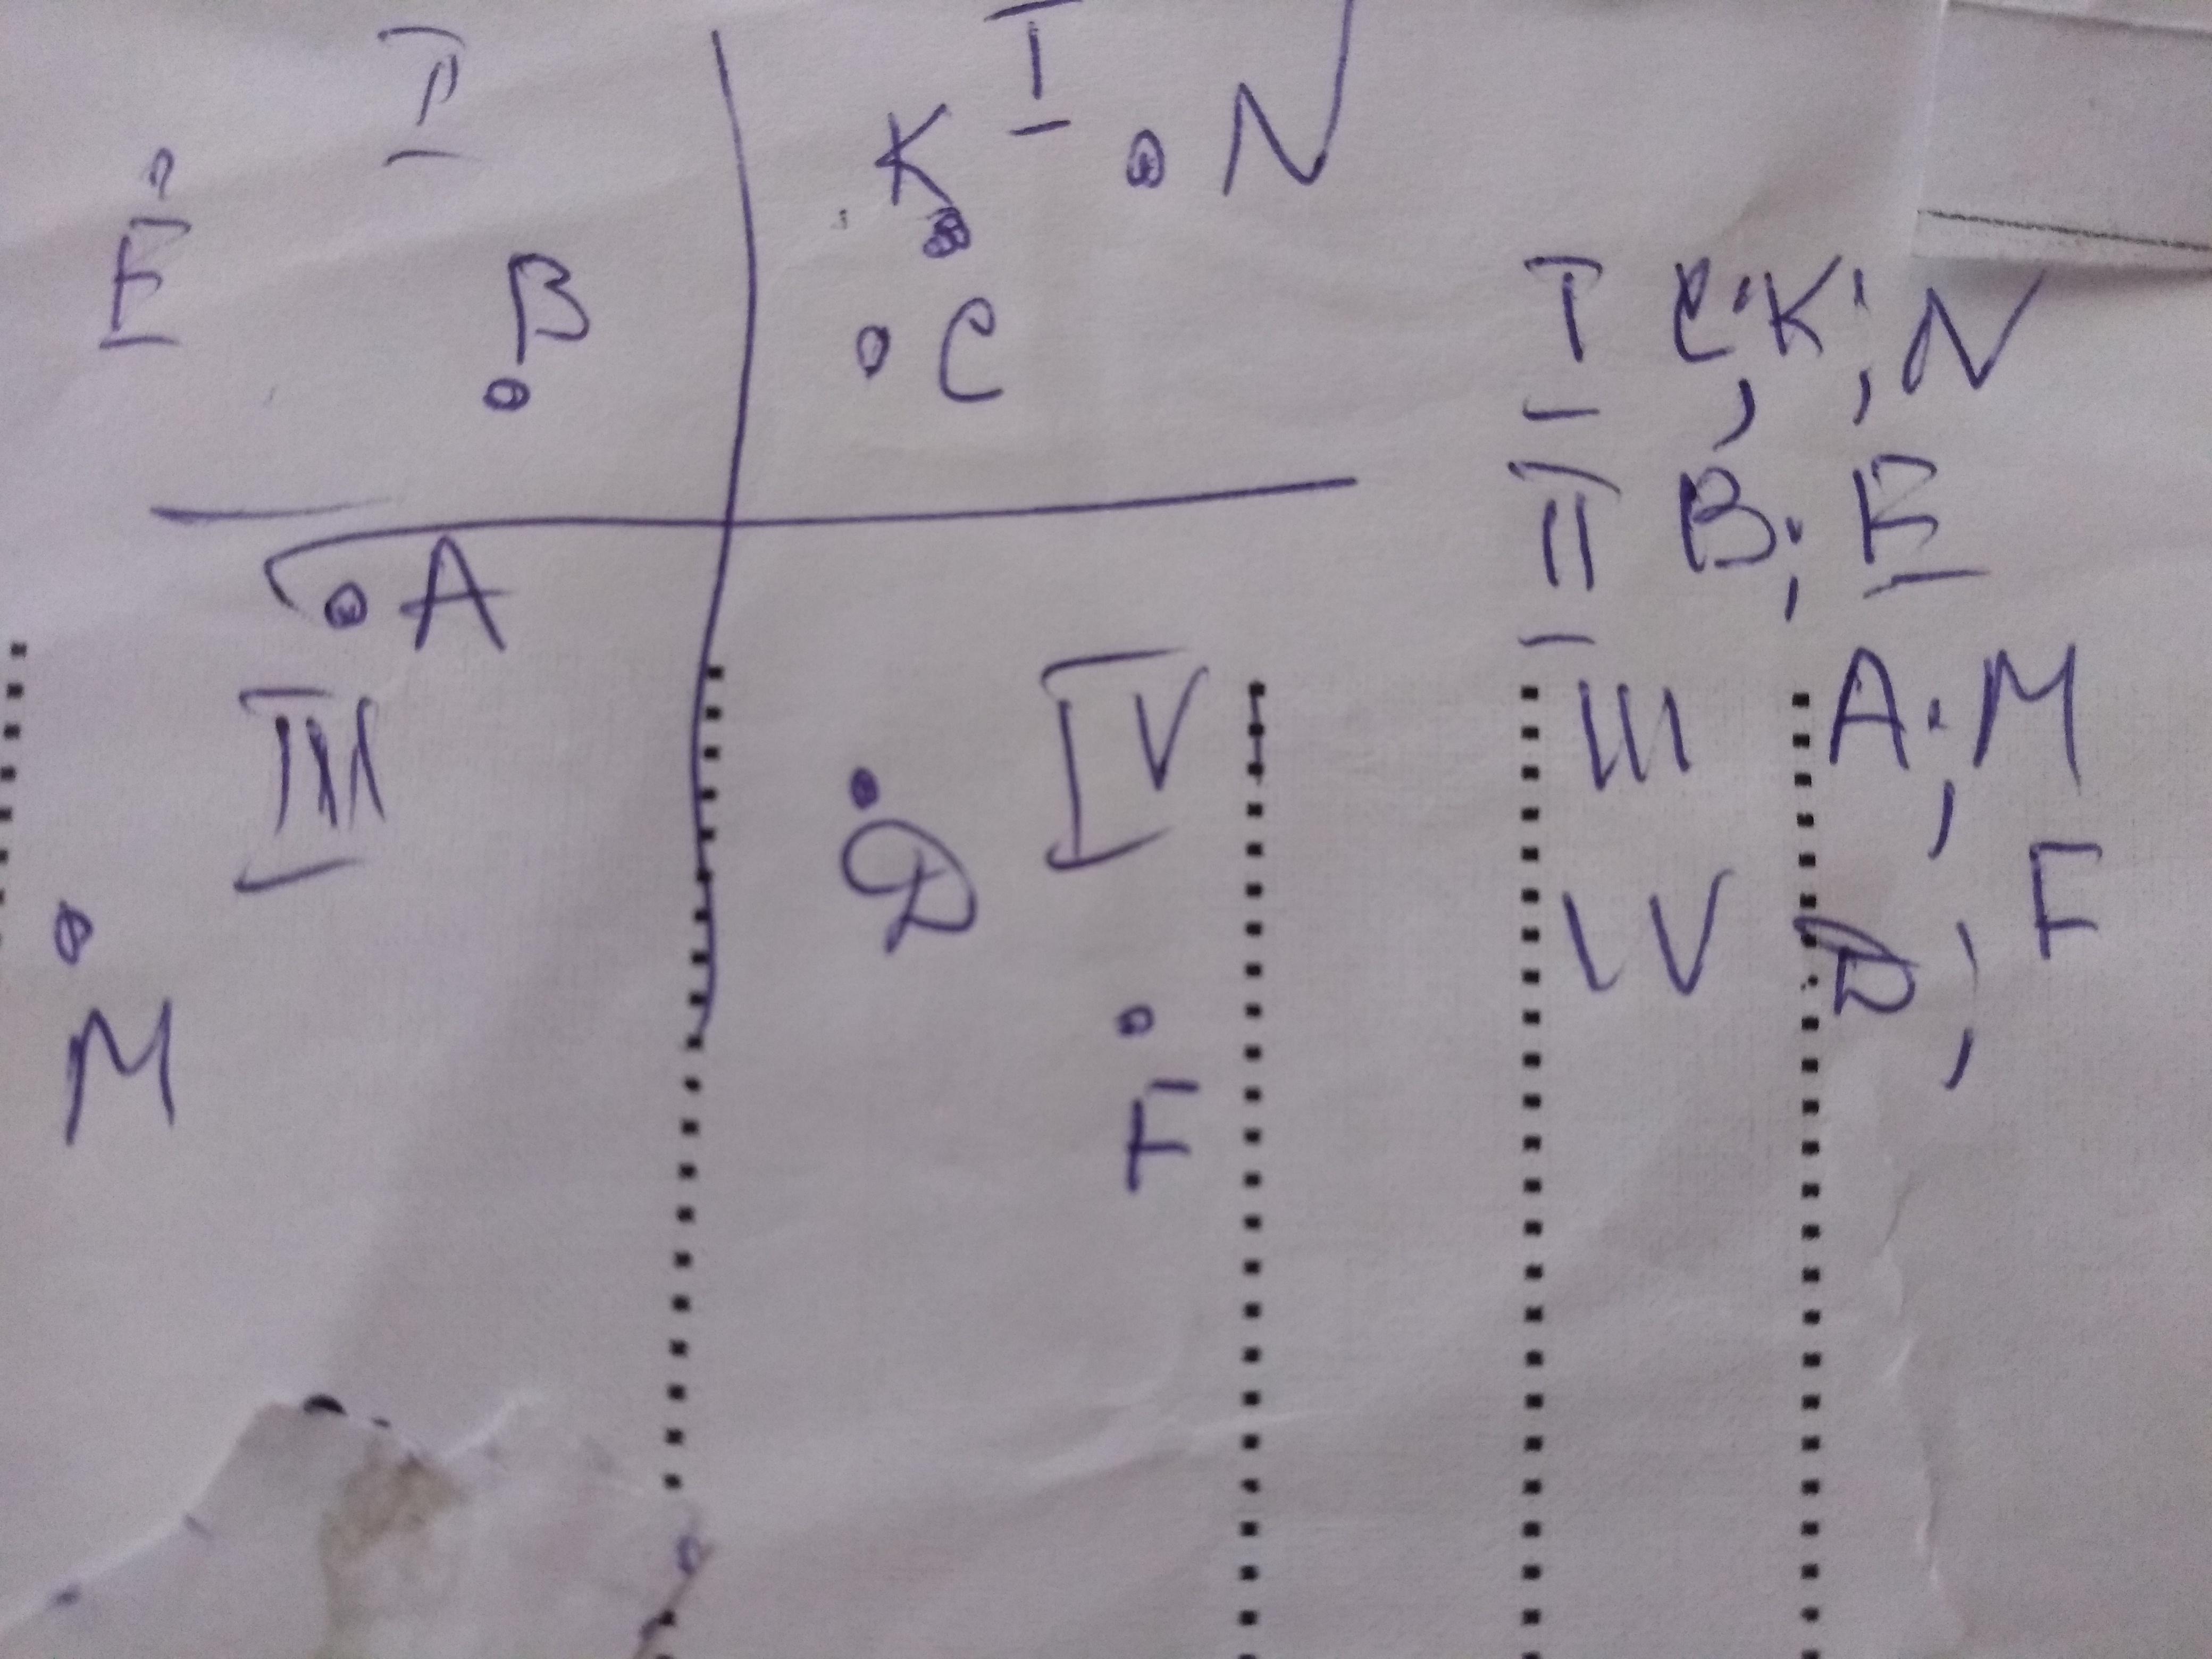 II I
K N
E B C
A
III IV
D
M F
I C; K; N
II B; E
III A; M
IV D; F